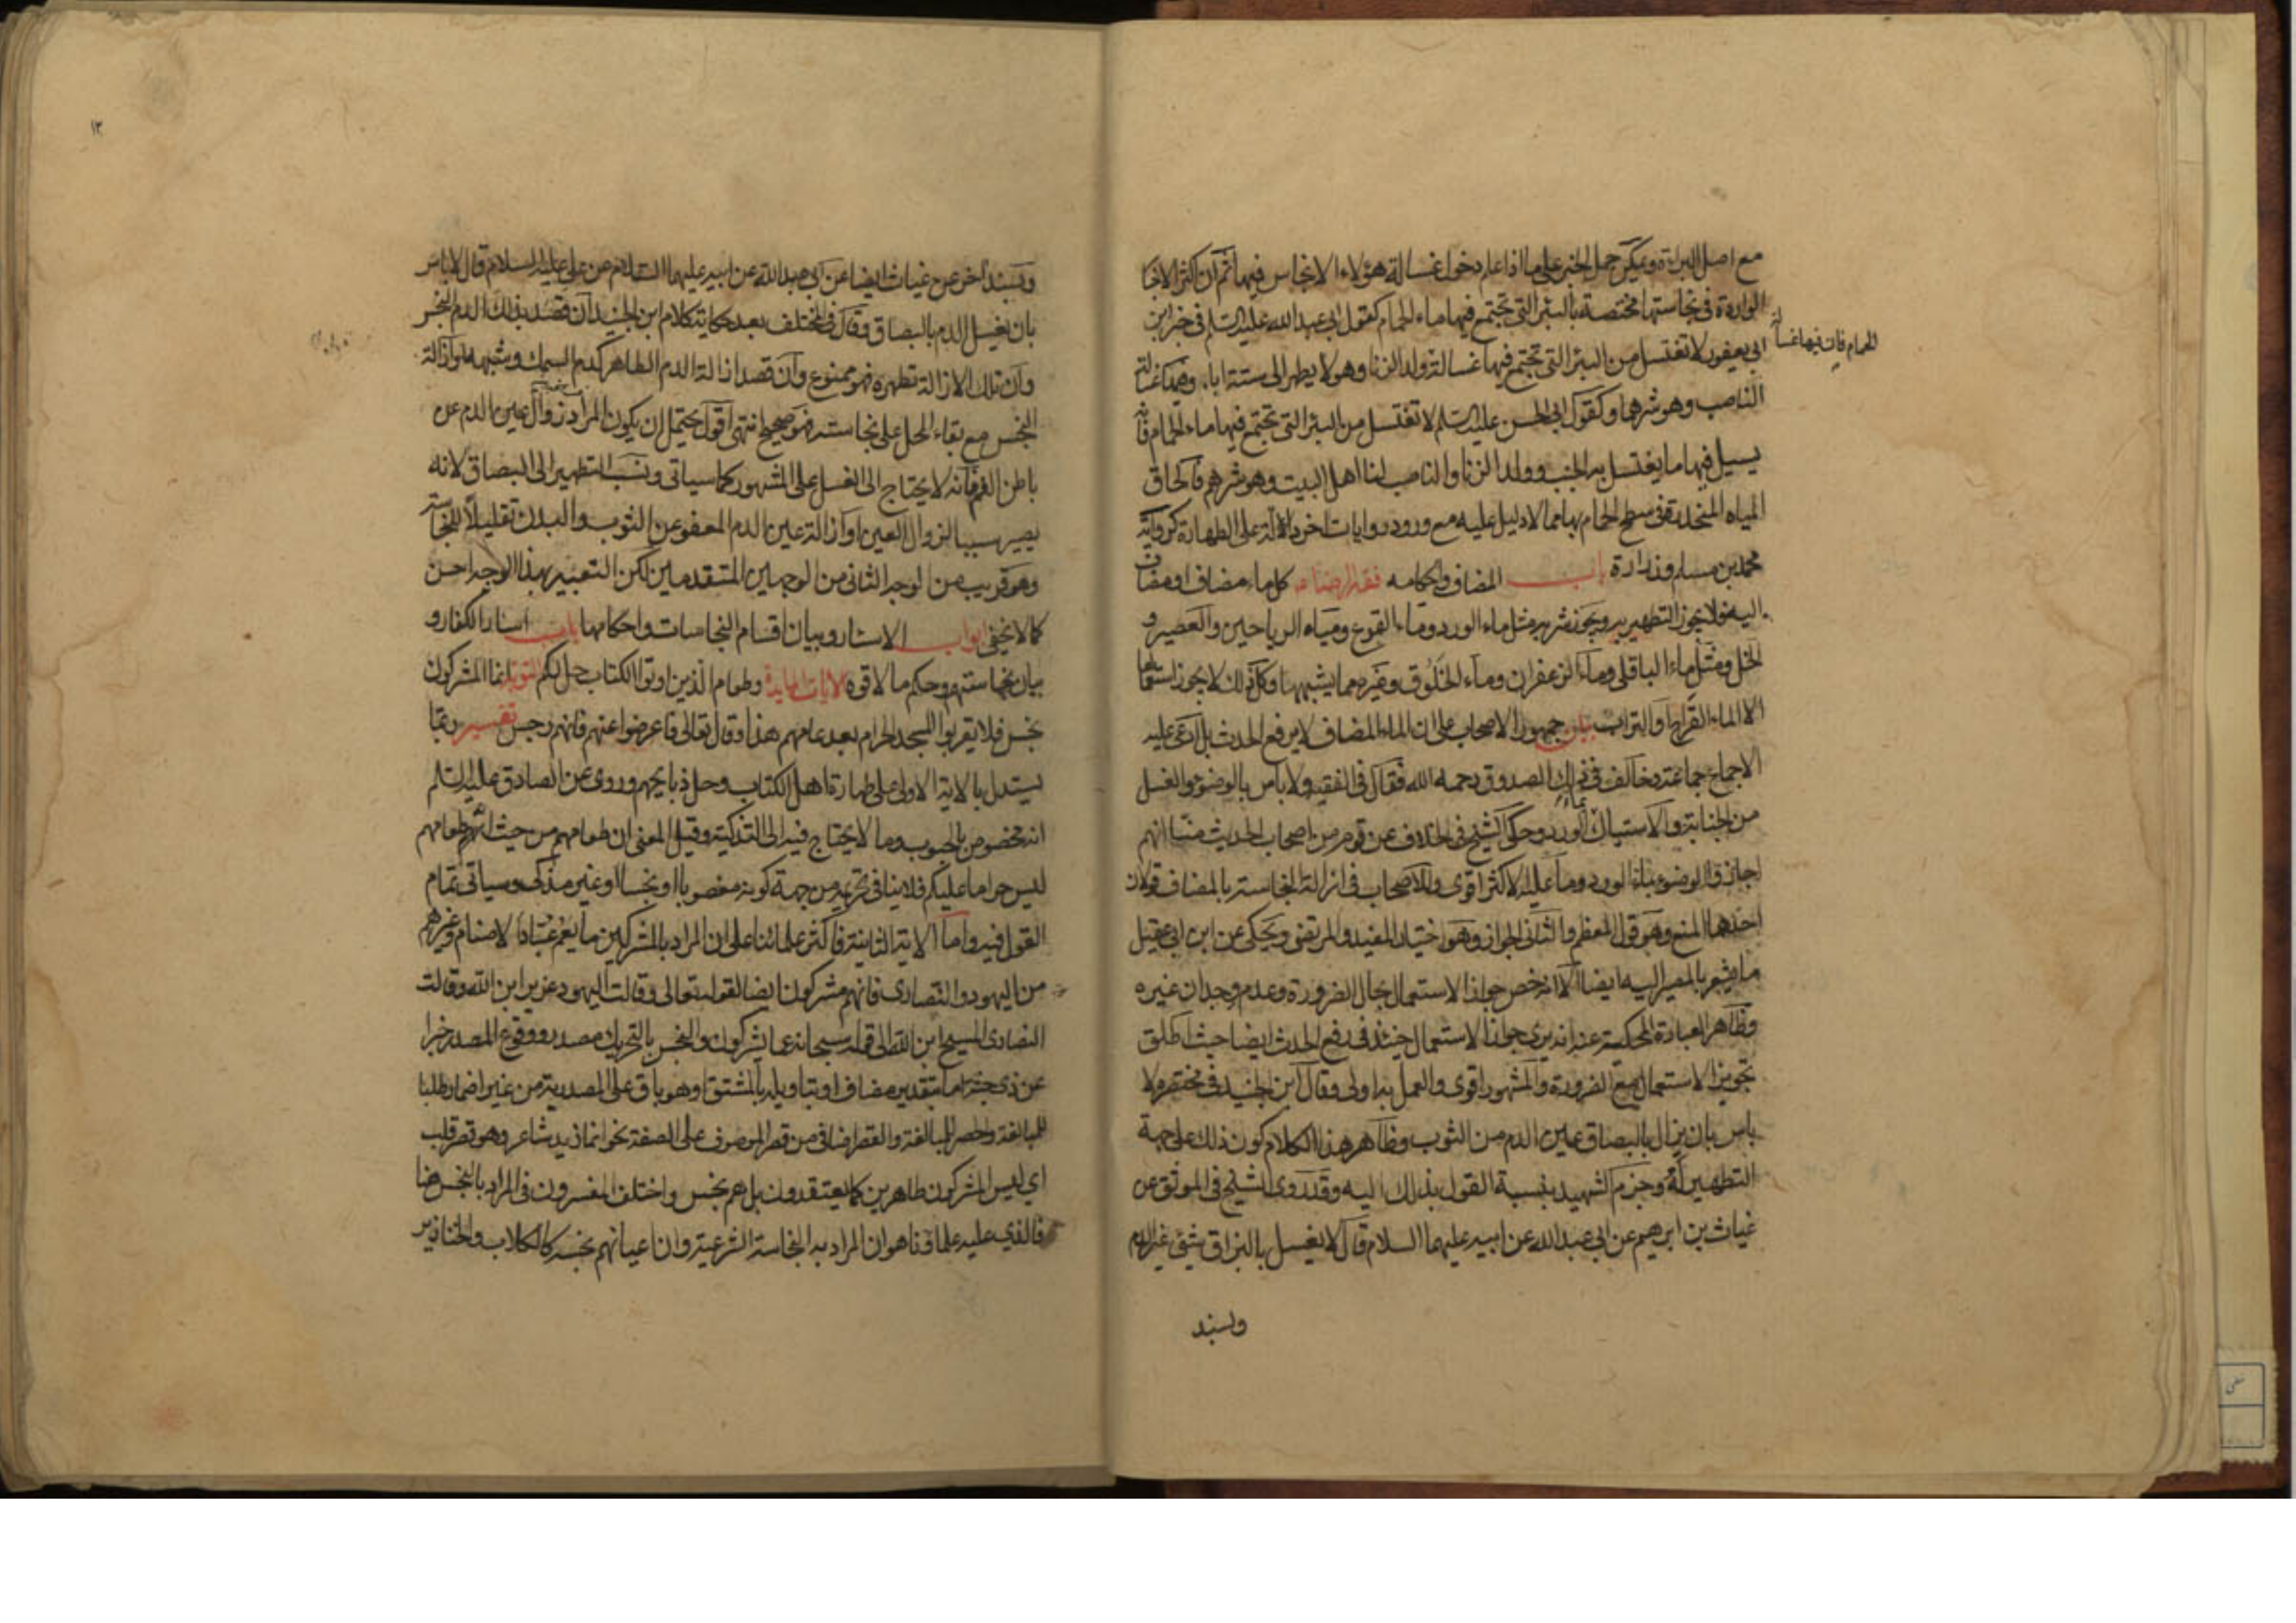 مع اصل البراءة ويمكن حمل الخبر على ما اذا علم دخول غسالة هؤلاء الانجاس فيها ثم ان اكثر الاخبا
الواردة في نجاستها مختصة بالبئر التي تجتمع فيها ماء الحمام كقول ابي عبد الله عليه السلم في خبر ابن
الحمام فان فيها غسالة
ابي يعفور لا تغتسل من البئر التي تجتمع فيها غسالة ولد الزنا وهو لا يطهر الى ستة اباء وفيها غسالة
الناصب وهو شرهما وكقول ابي الحسن عليه السلم لا تغتسل من البئر التي تجتمع فيها ماء الحمام فانه
يسيل فيها ما يغتسل به الجنب وولد الزنا والناصب لنا اهل البيت وهو شرهم فالحاق
المياه المنحدرة في سطح الحمام بها مما لا دليل عليه مع ورود روايات اخر دالة على الطهارة كرواية
محمد بن مسلم وزرارة باب المضاف واحكامه فقه الرضا ع كل ماء مضاف او مضاف
اليه فلا يجوز التطهير به ويجوز شربه مثل ماء الورد وماء القرع ومياه الرياحين والعصير و
الخل ومثل ماء الباقلى وماء الزعفران وماء الخلوق وغيره مما يشبهها وكل ذلك لا يجوز استعمالها
الا الماء القراح والتراب بيان جمهور الاصحاب على ان الماء المضاف لا يرفع الحدث بل ادعى عليه
الاجماع جماعة وخالف في ذلك الصدوق رحمه الله فقال في الفقيه ولا باس بالوضوء والغسل
من الجنابة والاستياك بماء الورد وحكى الشيخ في الخلاف عن قوم من اصحاب الحديث منا انهم
اجازوا الوضوء بماء الورد وما عليه الاكثر اقوى وللاصحاب في ازالة النجاسة بالمضاف قولان
احدهما المنع وهو قول المعظم والثاني الجواز وهو اختيار المفيد والمرتضى ويحكى عن ابن ابي عقيل
ما يشعر بالمصير اليه ايضا الا انه خص جواز الاستعمال بحال الضرورة وعدم وجدان غيره
وظاهر العبارة المحكية عنه انه يرى جواز الاستعمال حينئذ في رفع الحدث ايضا حيث اطلق
تجويز الاستعمال مع الضرورة والمشهور اقوى والعمل به اولى وقال ابن الجنيد في مختصره لا
باس بان يزال بالبصاق عين الدم من الثوب وظاهر هذا الكلام كون ذلك على جهة
التطهير له وجزم الشهيد بنسبة القول بذلك اليه وقد روى الشيخ في الموثق عن
غياث بن ابرهيم عن ابي عبد الله عن ابيه عليهما السلام قال لا يغسل بالبزاق شئ غير الدم
وبسند
١٢
وبسند اخر عن غياث ايضا عن ابي عبد الله عن ابيه عليهما السلام عن علي عليه السلام قال لا باس
بان يغسل الدم بالبصاق وقال في المختلف بعد حكاية كلام ابن الجنيد ان قصد بذلك الدم النجس
وان تلك الازالة تطهره فهو ممنوع وان قصد ازالة الدم الطاهر كدم السمك وشبهه او ازالة
النجس مع بقاء المحل على نجاسته فهو صحيح انتهى اقول يحتمل ان يكون المراد زوال عين الدم عن
باطن الفم فانه لا يحتاج الى الغسل على المشهور كما سياتي ونسب التطهير الى البصاق لانه
يصير سببا لزوال العين او ازالة عين الدم المعفو عن الثوب والبدن تقليلا للنجاسة
وهو قريب من الوجه الثاني من الوجهين المتقدمين لكن التعبير بهذا الوجه احسن
كما لا يخفى ابواب الاسئار وبيان اقسام النجاسات واحكامها باب اسئار الكفار و
بيان نجاستهم وحكم ما لاقوه الايات المايدة وطعام الذين اوتوا الكتاب حل لكم التوبة انما المشركون
نجس فلا يقربوا المسجد الحرام بعد عامهم هذا وقال تعالى فاعرضوا عنهم فانهم رجس تفسير ربما
يستدل بالاية الاولى على طهارة اهل الكتاب وحل ذبايحهم وروى عن الصادق عليه السلم
انه مخصوص بالحبوب وما لا يحتاج فيه الى التذكية وقيل المعنى ان طعامهم من حيث انه طعامهم
ليس حراما عليكم فلا ينافي تحريمه من جهة كونه مغصوبا او نجسا او غير مذكى وسياتي تمام
القول فيه واما الاية الثانية فاكثر علمائنا على ان المراد بالمشركين ما يعم عباد الاصنام وغيرهم
من اليهود والنصارى فانهم مشركون ايضا لقوله تعالى وقالت اليهود عزير ابن الله وقالت
النصارى المسيح ابن الله الى قوله سبحانه عما يشركون والنجس بالتحريك مصدر ووقوع المصدر خبرا
عن ذي جثة اما بتقدير مضاف او بتاويله بالمشتق او هو باق على المصدرية من غير اضمار طلبا
للمبالغة والحصر للمبالغة والقصر اضافي من قصر الموصوف على الصفة نحو انما زيد شاعر وهو قصر قلب
اي ليس المشركون طاهرين كما يعتقدون بل هم نجس واختلف المفسرون في المراد بالنجس هنا
فالذي عليه علماؤنا هو ان المراد به النجاسة الشرعية وان اعيانهم نجسة كالكلاب والخنازير